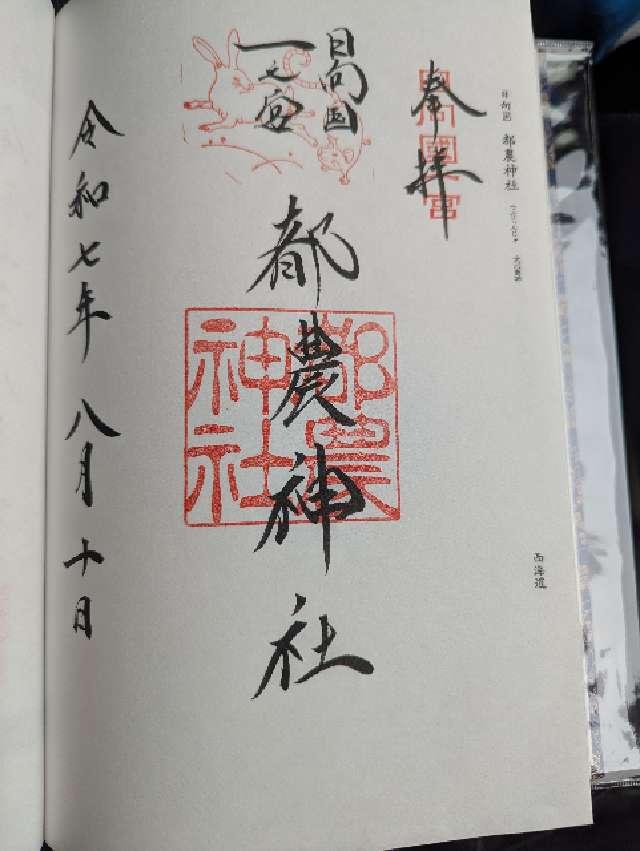 日向国 都農神社
奉拝
日向國一宮
日向国
一之宮
都農神社
都農神社
令和七年八月十日
西海道